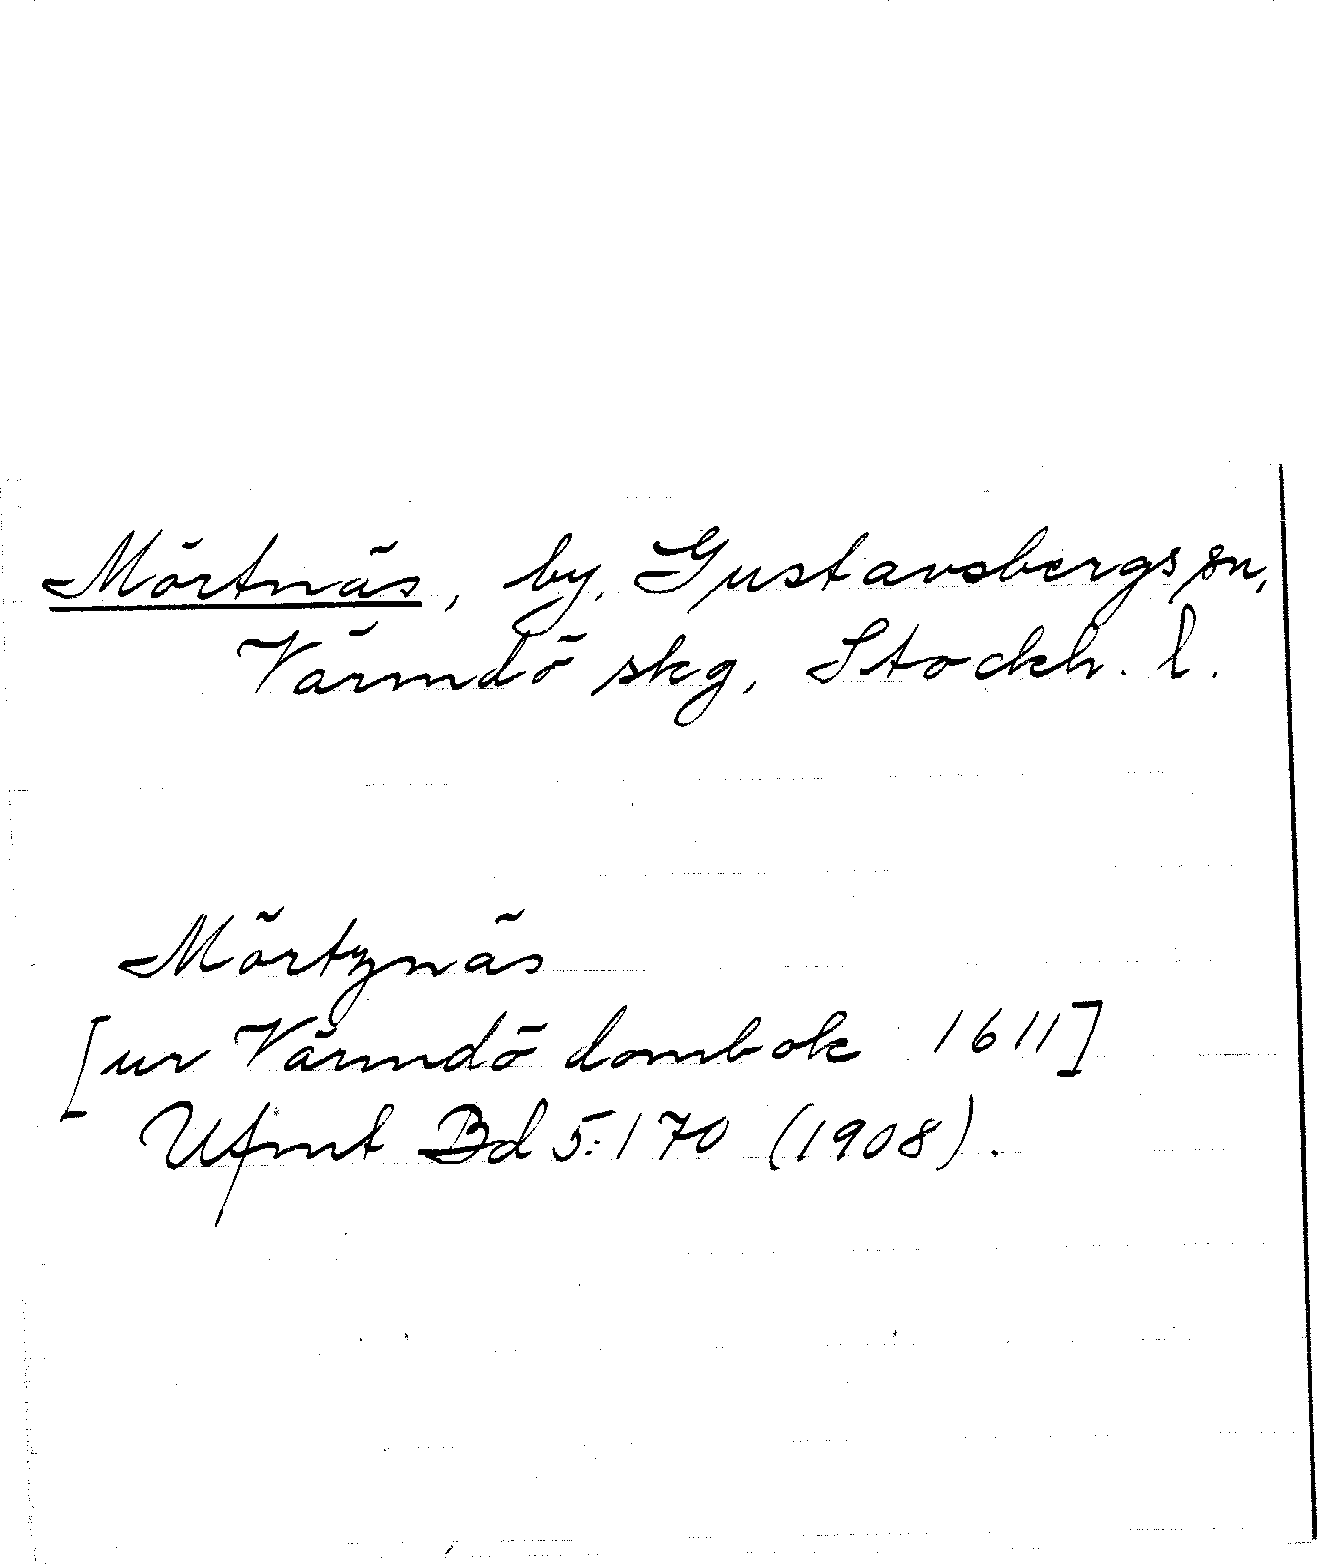 Mörtnäs, by, Gustavsbergs sn,
Värmdö skg, Stockh. l.
Mörtznäs
[ur Värmdö dombok 1611]
Ufmt Bd 5:170 (1908).